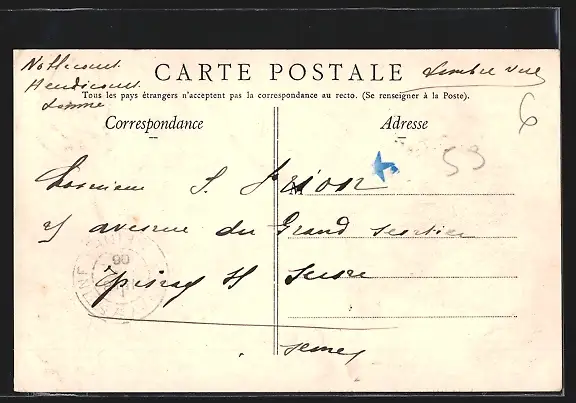 CARTE POSTALE
Timbre vue
Somme
Tous les pays étrangers n'acceptent pas la correspondance au recto. (Se renseigner à la Poste).
6
Correspondance
Adresse
53
Monsieur S. Prior
avenue du Grand Sentier
Epinay S/ Seine
Seine